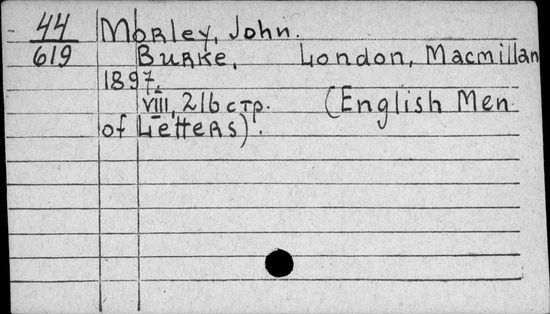 44 Morley, John.
619 Burke, London, Macmillan
1897.
VIII, 216 стр. (English Men
of Letters).